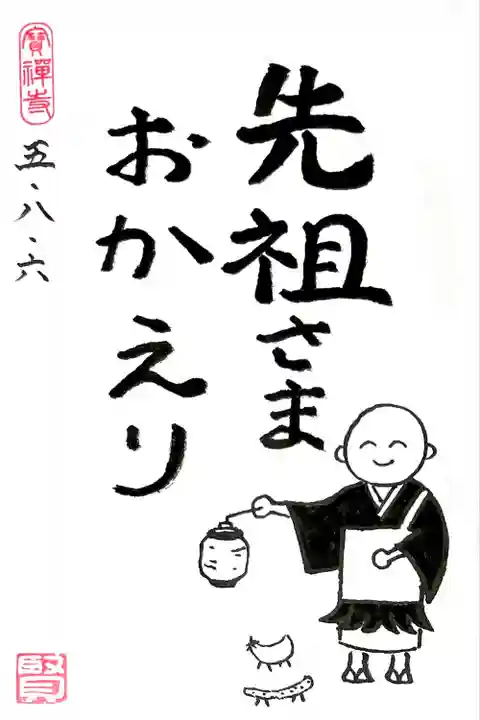 先祖さま
おかえり
寳禪寺
五・八・六
賢